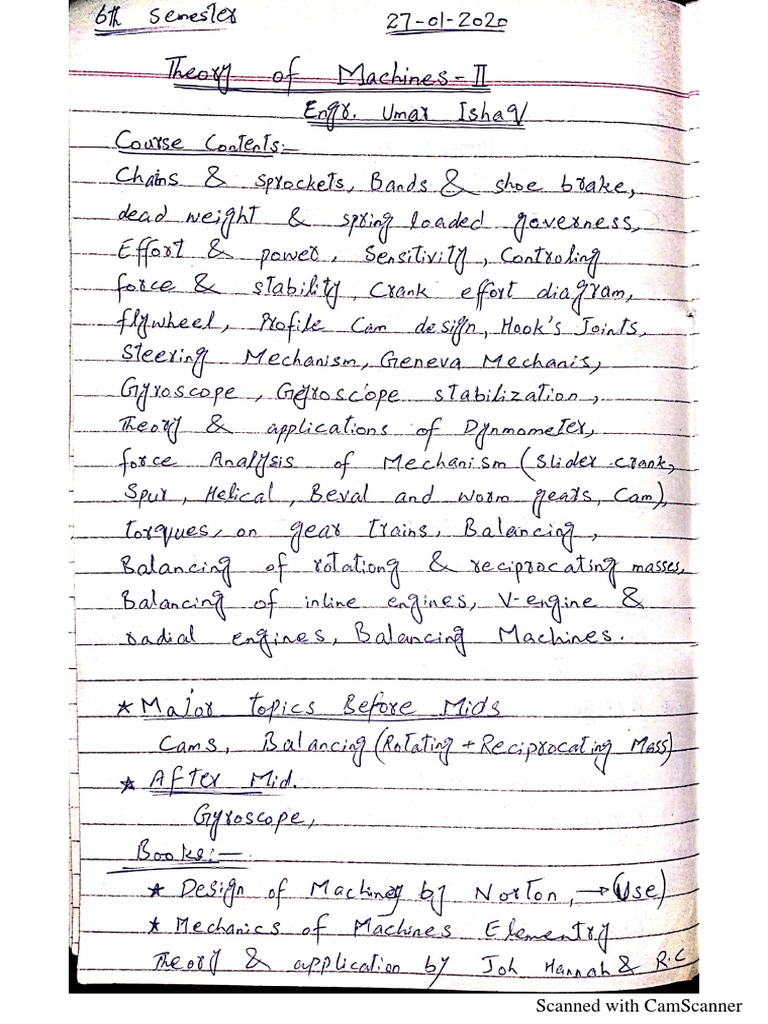 6th Semester 27-01-2020
Theory of Machines-II
Engr. Umar Ishaq
Course Contents:-
Chains & sprockets, Bands & shoe brake,
dead weight & spring loaded governess,
Effort & power, Sensitivity, Controling
force & stability, Crank effort diagram,
flywheel, Profile Cam design, Hook's Joints,
Steering Mechanism, Geneva Mechanis,
Gyroscope, Gyroscope stabilization,
Theory & applications of Dynmometer,
force Analysis of Mechanism (Slider crank,
Spur, Helical, Beval and worm gears, Cam),
torques, on gear trains, Balancing,
Balancing of rotationg & reciprocating masses,
Balancing of inline engines, V-engine &
radial engines, Balancing Machines.
* Major Topics Before Mids
Cams, Balancing (Rotating + Reciprocating Mass)
* After Mid.
Gyroscope,
Books:-
* Design of Machinery by Norton, → (Use)
* Mechanics of Machines Elementry
Theory & application by Joh Hannah & R.C
Scanned with CamScanner